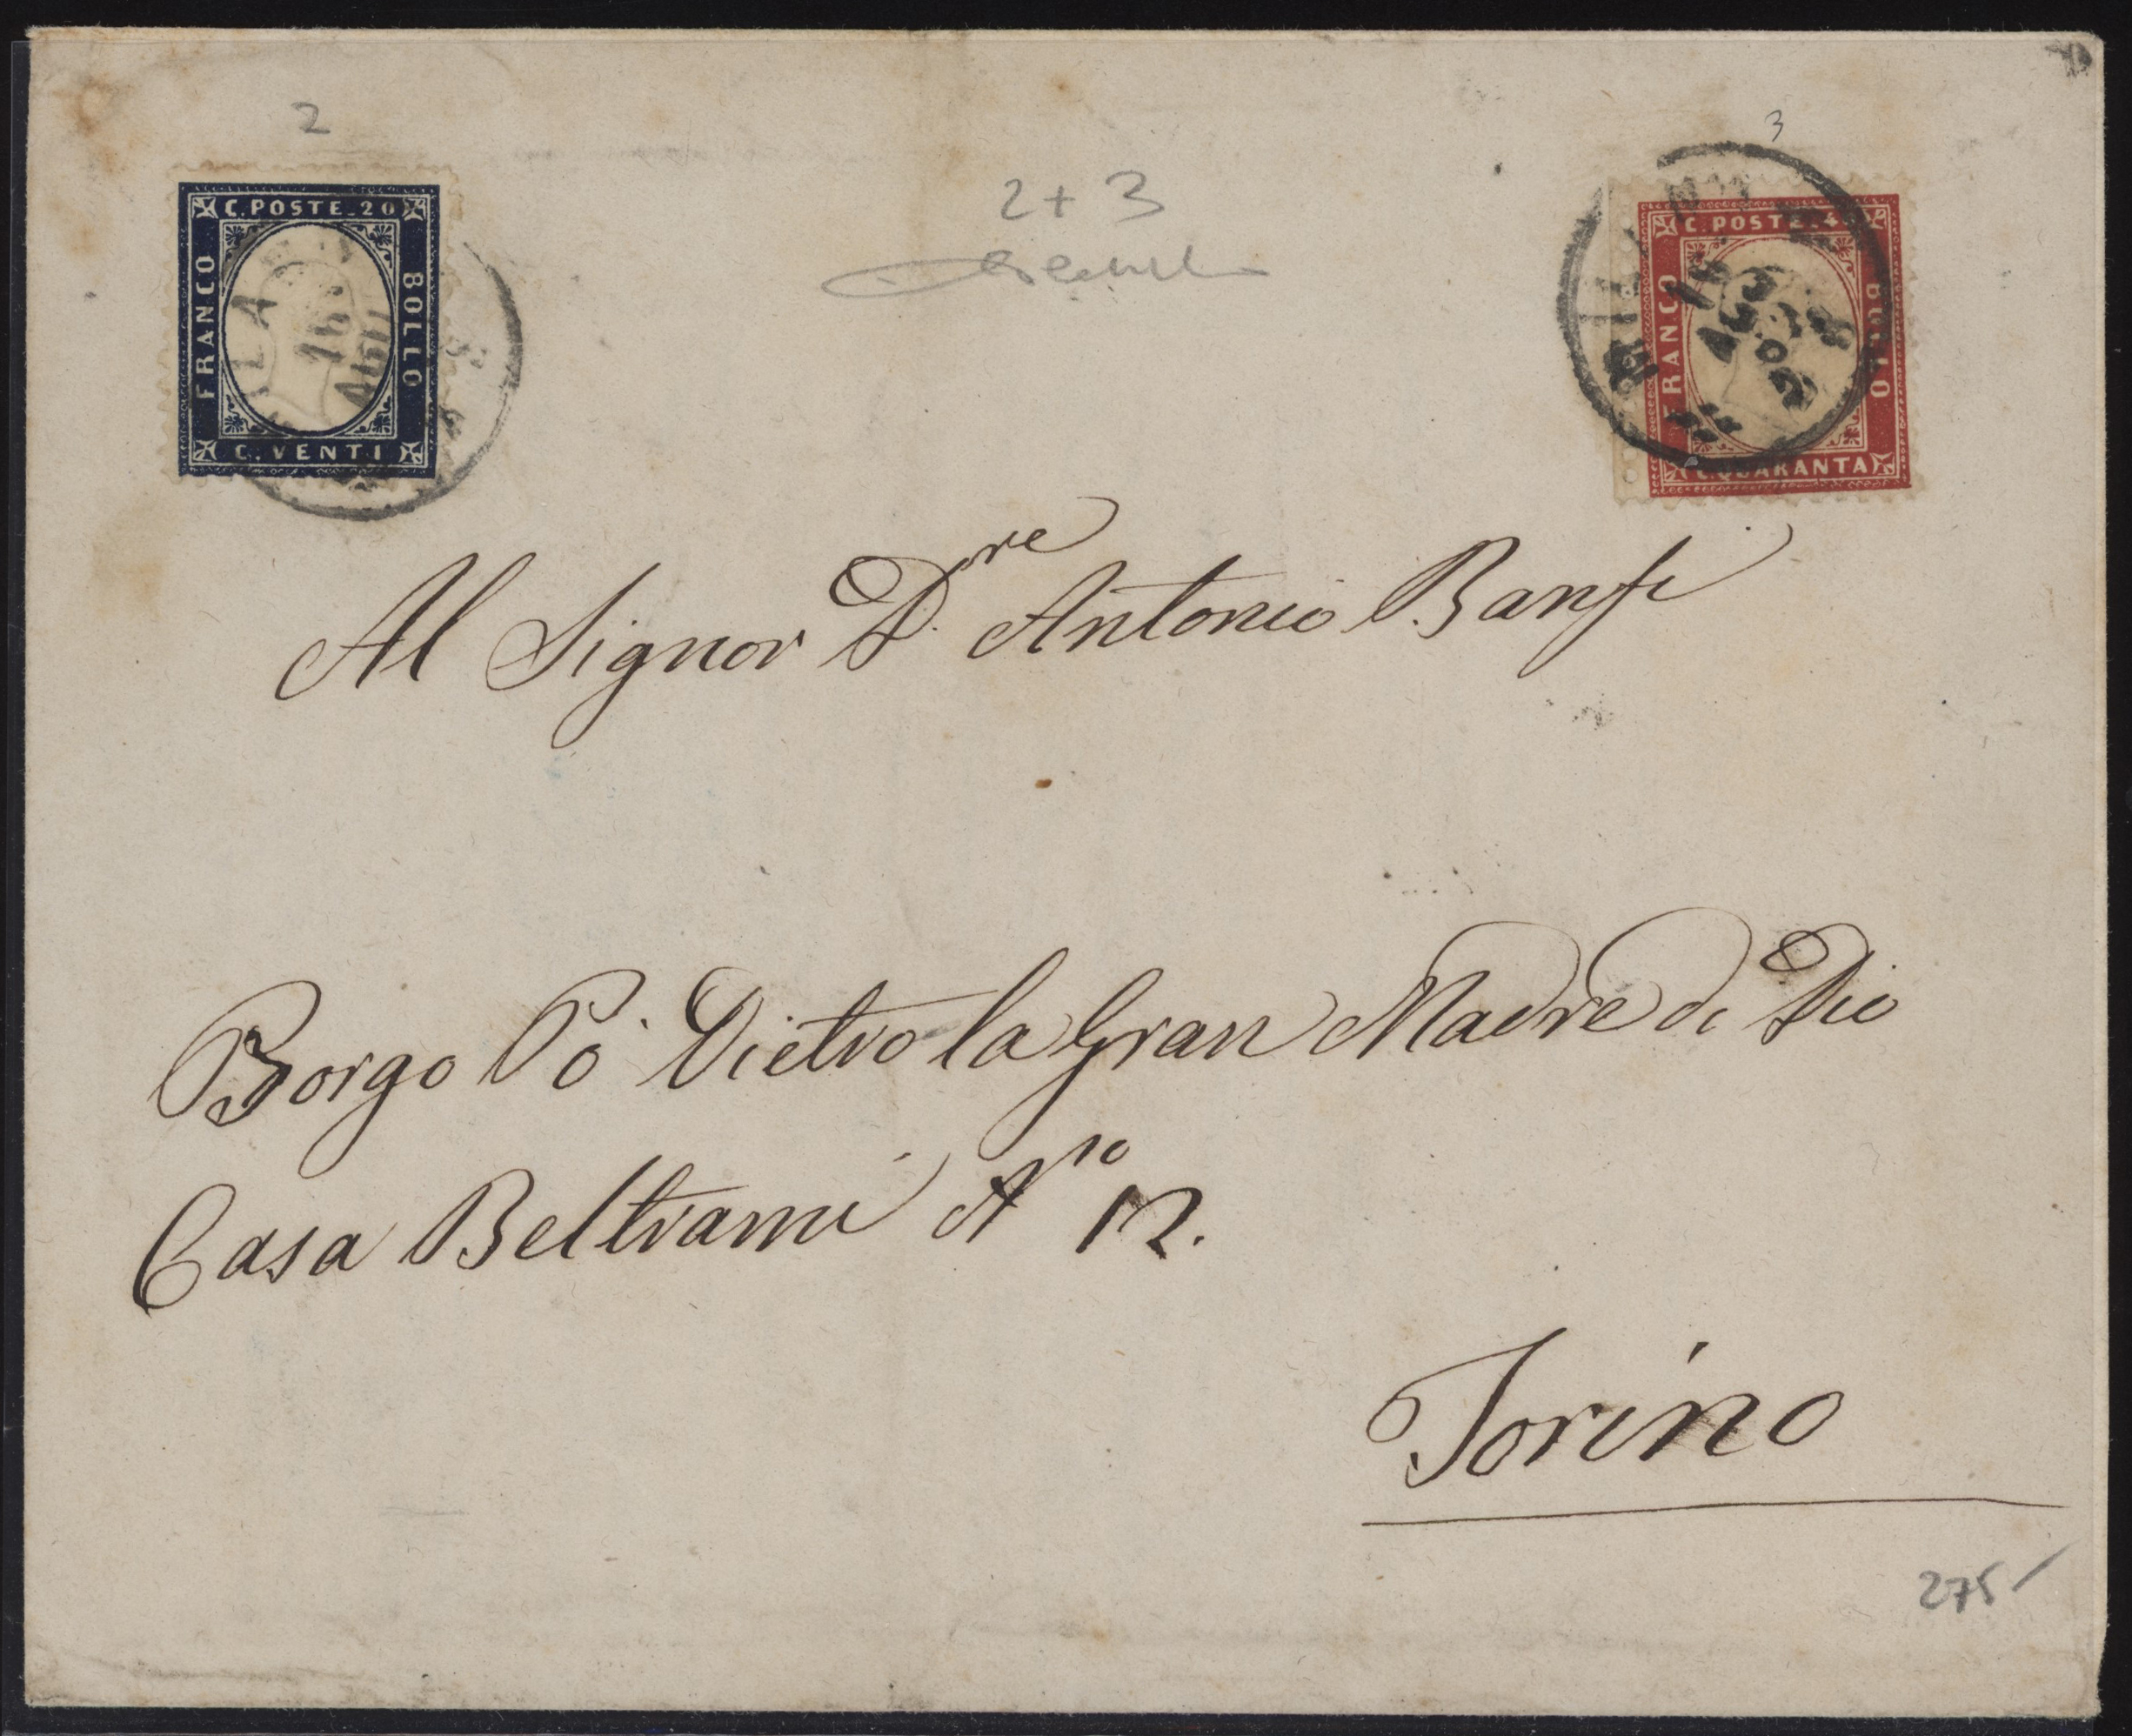 2
3
2 + 3
C. POSTE 20
FRANCO
BOLLO
C. VENTI
16
AGO
C. POSTE 4
FRANCO
BOLLO
C. QUARANTA
MILANO
16
AGO
Al Signor D.re Antonio Banfi
Borgo Pò Dietro la Gran Madre di Dio
Casa Beltrami No 12.
Torino
275